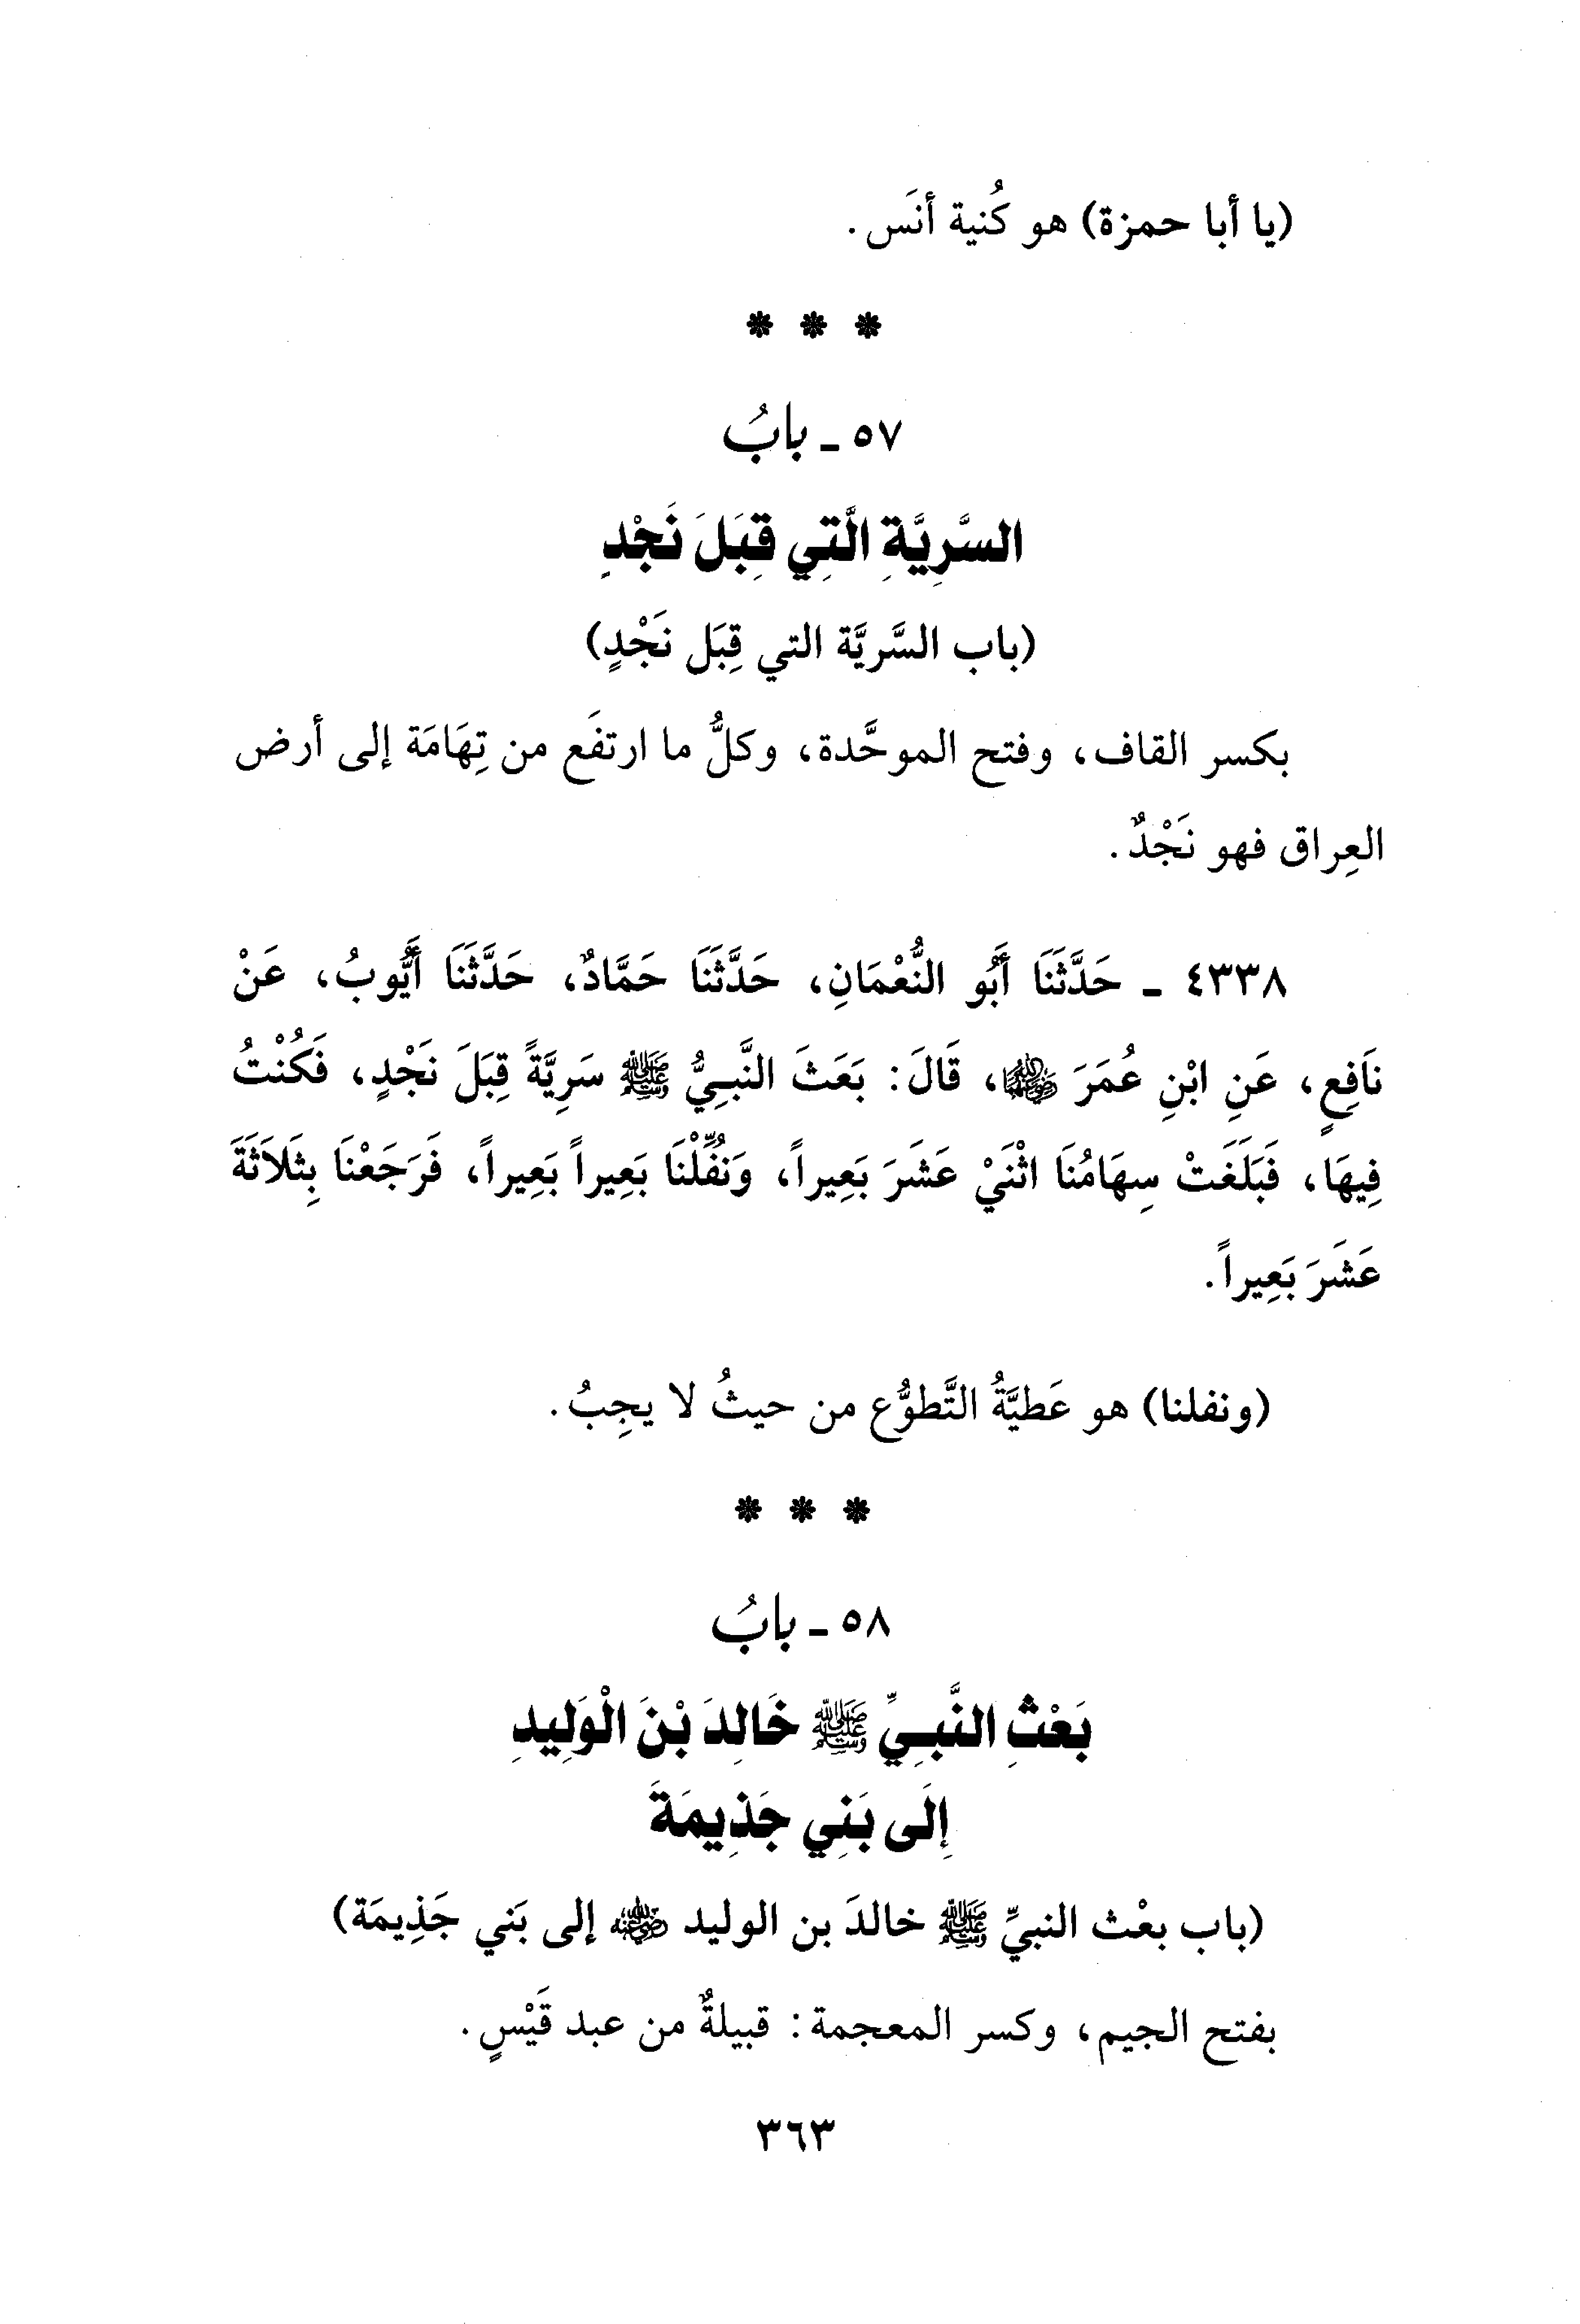 (يا أبا حمزة) هو كُنية أنَس.
* * *
٥٧ ـ بابُ
السَّرِيَّةِ الَّتِي قِبَلَ نَجْدٍ
(باب السَّريَّة التي قِبَل نَجْدٍ)
بكسر القاف، وفتح الموحَّدة، وكلُّ ما ارتفَع من تِهَامَة إلى أرض
العِراق فهو نَجْدٌ.
٤٣٣٨ ـ حَدَّثَنَا أَبُو النُّعْمَانِ، حَدَّثَنَا حَمَّادٌ، حَدَّثَنَا أَيُّوبُ، عَنْ
نَافِعٍ، عَنِ ابْنِ عُمَرَ رضي الله عنهما، قَالَ: بَعَثَ النَّبِيُّ ﷺ سَرِيَّةً قِبَلَ نَجْدٍ، فَكُنْتُ
فِيهَا، فَبَلَغَتْ سِهَامُنَا اثْنَيْ عَشَرَ بَعِيراً، وَنُفِّلْنَا بَعِيراً بَعِيراً، فَرَجَعْنَا بِثَلاَثَةَ
عَشَرَ بَعِيراً.
(ونفلنا) هو عَطيَّةُ التَّطوُّع من حيثُ لا يجِبُ.
* * *
٥٨ ـ بابُ
بَعْثِ النَّبِيِّ ﷺ خَالِدَ بْنَ الْوَلِيدِ
إِلَى بَنِي جَذِيمَةَ
(باب بعْث النبيِّ ﷺ خالدَ بن الوليد رضي الله عنه إلى بَني جَذِيمَة)
بفتح الجيم، وكسر المعجمة: قبيلةٌ من عبد قَيْسٍ.
٣٦٣